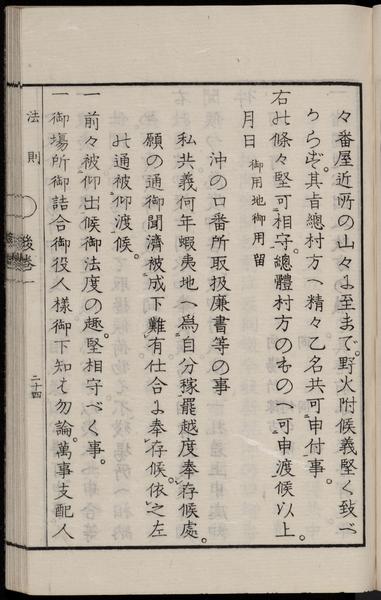 々番屋近所の山々に至まで。野火附候義堅く致べ
からず。其旨總村方へ精々乙名共可申付事。
右の條々堅可相守。總體村方のもの へ可申渡候以上。
月日 御用地御用留
沖の口番所取扱廉書等の事
私共義何年蝦夷地へ爲自分稼罷越度奉存候處。
願の通御聞濟被成下難有仕合に奉存候依之左
の通被仰渡候。
一前々被仰出候御法度の趣。堅相守べく事。
一御場所御詰合御役人樣御下知は勿論。萬事支配人
法則 後卷一 二十四